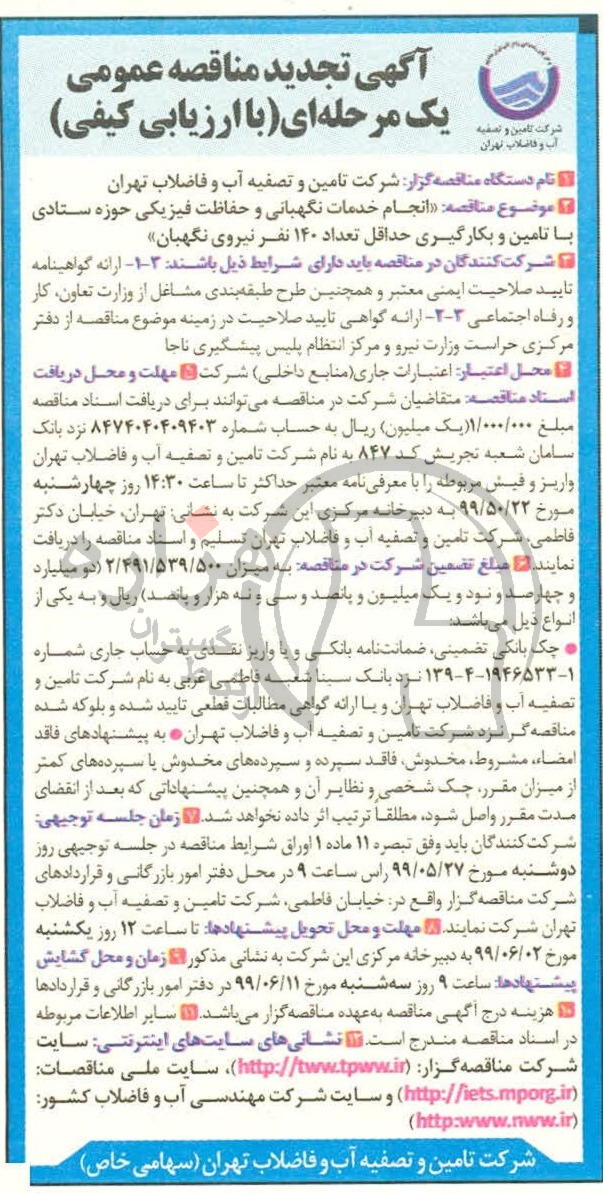 آگهی تجدید مناقصه عمومی
یک مرحله‌ای (با ارزیابی کیفی)
شرکت تامین و تصفیه
آب و فاضلاب تهران
۱ نام دستگاه مناقصه‌گزار: شرکت تامین و تصفیه آب و فاضلاب تهران
۲ موضوع مناقصه: «انجام خدمات نگهبانی و حفاظت فیزیکی حوزه ستادی
با تامین و بکارگیری حداقل تعداد ۱۴۰ نفر نیروی نگهبان»
۳ شرکت‌کنندگان در مناقصه باید دارای شرایط ذیل باشند: ۳-۱- ارائه گواهینامه
تایید صلاحیت ایمنی معتبر و همچنین طرح طبقه‌بندی مشاغل از وزارت تعاون، کار
و رفاه اجتماعی ۳-۲- ارائه گواهی تایید صلاحیت در زمینه موضوع مناقصه از دفتر
مرکزی حراست وزارت نیرو و مرکز انتظام پلیس پیشگیری ناجا
۴ محل اعتبار: اعتبارات جاری(منابع داخلی) شرکت ۵ مهلت و محل دریافت
اسناد مناقصه: متقاضیان شرکت در مناقصه می‌توانند برای دریافت اسناد مناقصه
مبلغ ۱/۰۰۰/۰۰۰(یک میلیون) ریال به حساب شماره ۸۴۷۴۰۴۰۴۰۹۴۰۳ نزد بانک
سامان شعبه تجریش کد ۸۴۷ به نام شرکت تامین و تصفیه آب و فاضلاب تهران
واریز و فیش مربوطه را با معرفی‌نامه معتبر حداکثر تا ساعت ۱۴:۳۰ روز چهارشنبه
مورخ ۹۹/۵۰/۲۲ به دبیرخانه مرکزی این شرکت به نشانی: تهران، خیابان دکتر
فاطمی، شرکت تامین و تصفیه آب و فاضلاب تهران تسلیم و اسناد مناقصه را دریافت
نمایند. ۶ مبلغ تضمین شرکت در مناقصه: به میزان ۲/۴۹۱/۵۳۹/۵۰۰ (دو میلیارد
و چهارصد و نود و یک میلیون و پانصد و سی و نه هزار و پانصد) ریال و به یکی از
انواع ذیل می‌باشد:
● چک بانکی تضمینی، ضمانت‌نامه بانکی و یا واریز نقدی به حساب جاری شماره
۱۳۹-۴-۱۹۴۶۵۳۳-۱ نزد بانک سینا شعبه فاطمی غربی به نام شرکت تامین و
تصفیه آب و فاضلاب تهران و یا ارائه گواهی مطالبات قطعی تایید شده و بلوکه شده
مناقصه‌گر نزد شرکت تامین و تصفیه آب و فاضلاب تهران ● به پیشنهادهای فاقد
امضاء، مشروط، مخدوش، فاقد سپرده و سپرده‌های مخدوش یا سپرده‌های کمتر
از میزان مقرر، چک شخصی و نظایر آن و همچنین پیشنهاداتی که بعد از انقضای
مدت مقرر واصل شود، مطلقاً ترتیب اثر داده نخواهد شد. ۷ زمان جلسه توجیهی:
شرکت‌کنندگان باید وفق تبصره ۱۱ ماده ۱ اوراق شرایط مناقصه در جلسه توجیهی روز
دوشنبه مورخ ۹۹/۰۵/۲۷ راس ساعت ۹ در محل دفتر امور بازرگانی و قراردادهای
شرکت مناقصه‌گزار واقع در: خیابان فاطمی، شرکت تامین و تصفیه آب و فاضلاب
تهران شرکت نمایند. ۸ مهلت و محل تحویل پیشنهادها: تا ساعت ۱۲ روز یکشنبه
مورخ ۹۹/۰۶/۰۲ به دبیرخانه مرکزی این شرکت به نشانی مذکور ۹ زمان و محل گشایش
پیشنهادها: ساعت ۹ روز سه‌شنبه مورخ ۹۹/۰۶/۱۱ در دفتر امور بازرگانی و قراردادها
۱۰ هزینه درج آگهی مناقصه به‌عهده مناقصه‌گزار می‌باشد. ۱۱ سایر اطلاعات مربوطه
در اسناد مناقصه مندرج است. ۱۲ نشانی‌های سایت‌های اینترنتی: سایت
شرکت مناقصه‌گزار: (http://tww.tpww.ir)، سایت ملی مناقصات:
(http://iets.mporg.ir) و سایت شرکت مهندسی آب و فاضلاب کشور:
(http:www.nww.ir)
شرکت تامین و تصفیه آب و فاضلاب تهران (سهامی خاص)
هزاره
گستران